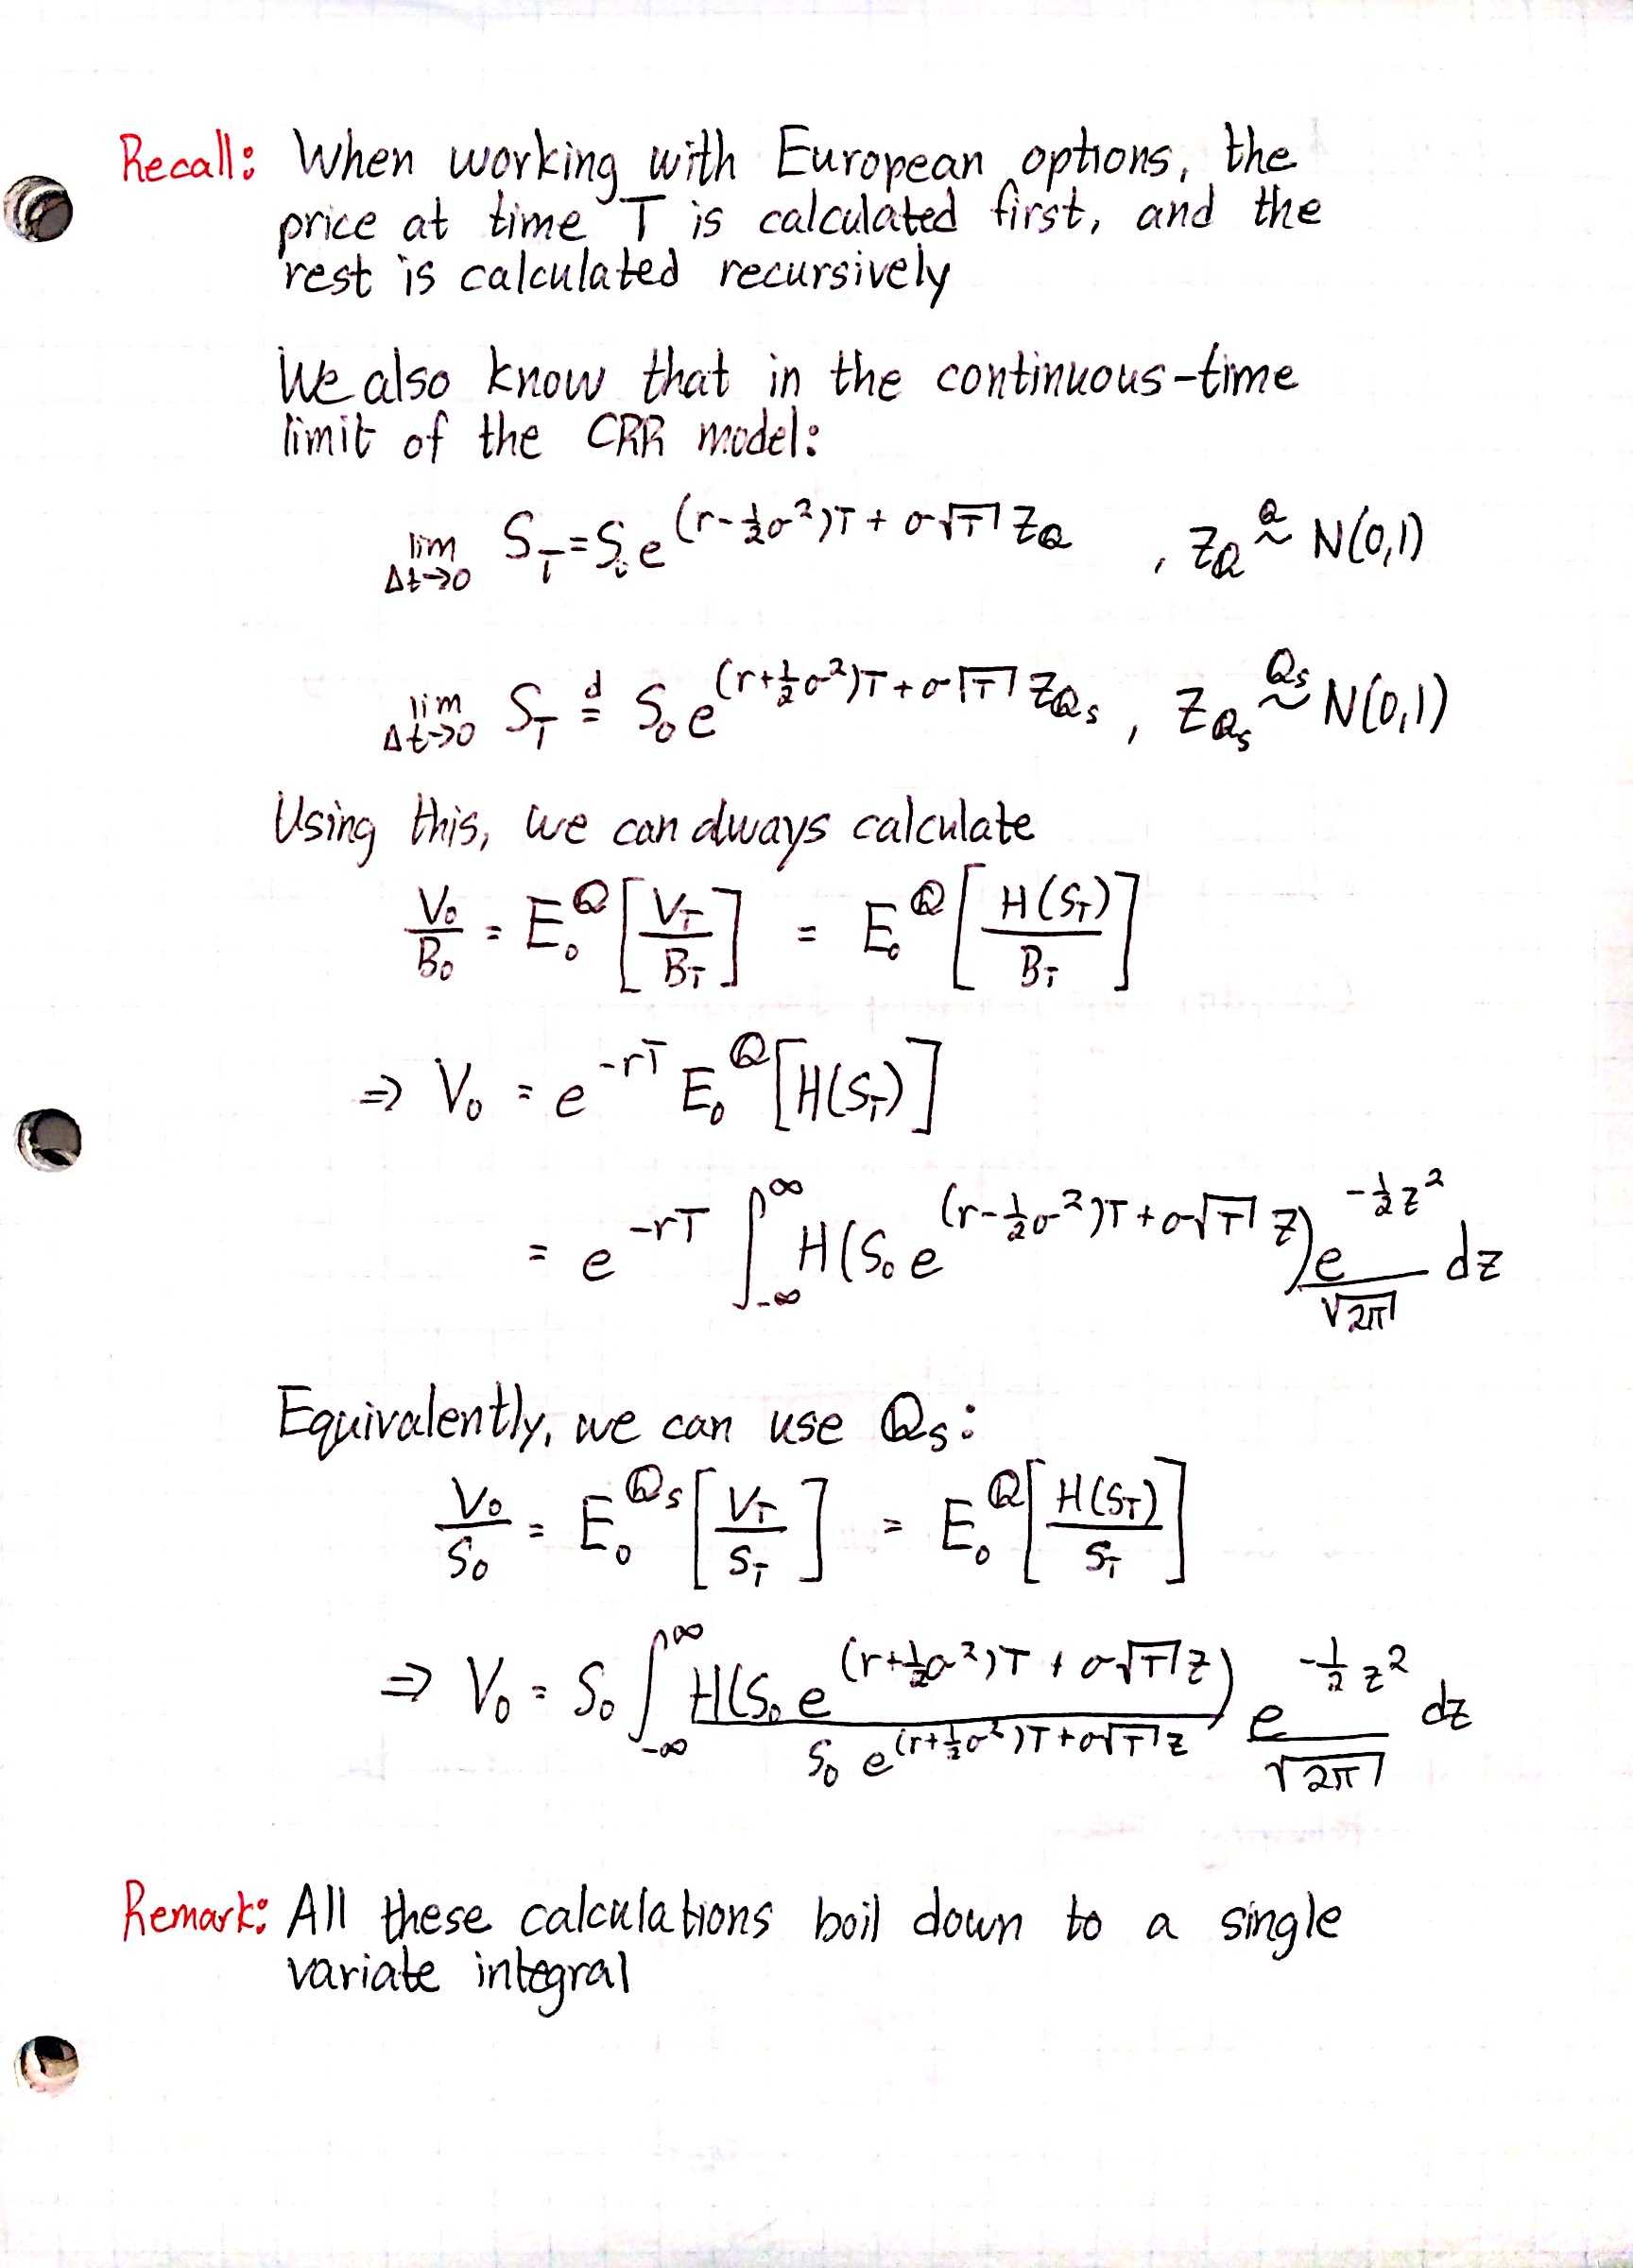 Recall: When working with European options, the
price at time T is calculated first, and the
rest is calculated recursively
We also know that in the continuous-time
limit of the CRR model:
lim_{Δt→0} S_T = S_0 e^{(r-½σ²)T + σ√T Z_Q} , Z_Q ~^Q N(0,1)
lim_{Δt→0} S_T =^d S_0 e^{(r+½σ²)T + σ√T Z_{Q_S}} , Z_{Q_S} ~^{Q_S} N(0,1)
Using this, we can always calculate
V_0/B_0 = E_0^Q [V_T/B_T] = E_0^Q [H(S_T)/B_T]
⇒ V_0 = e^{-rT} E_0^Q [H(S_T)]
= e^{-rT} ∫_{-∞}^{∞} H(S_0 e^{(r-½σ²)T + σ√T z}) e^{-½z²}/√2π dz
Equivalently, we can use Q_S:
V_0/S_0 = E_0^{Q_S} [V_T/S_T] = E_0^Q [H(S_T)/S_T]
⇒ V_0 = S_0 ∫_{-∞}^{∞} H(S_0 e^{(r+½σ²)T + σ√T z})/S_0 e^{(r+½σ²)T + σ√T z} e^{-½z²}/√2π dz
Remark: All these calculations boil down to a single
variate integral